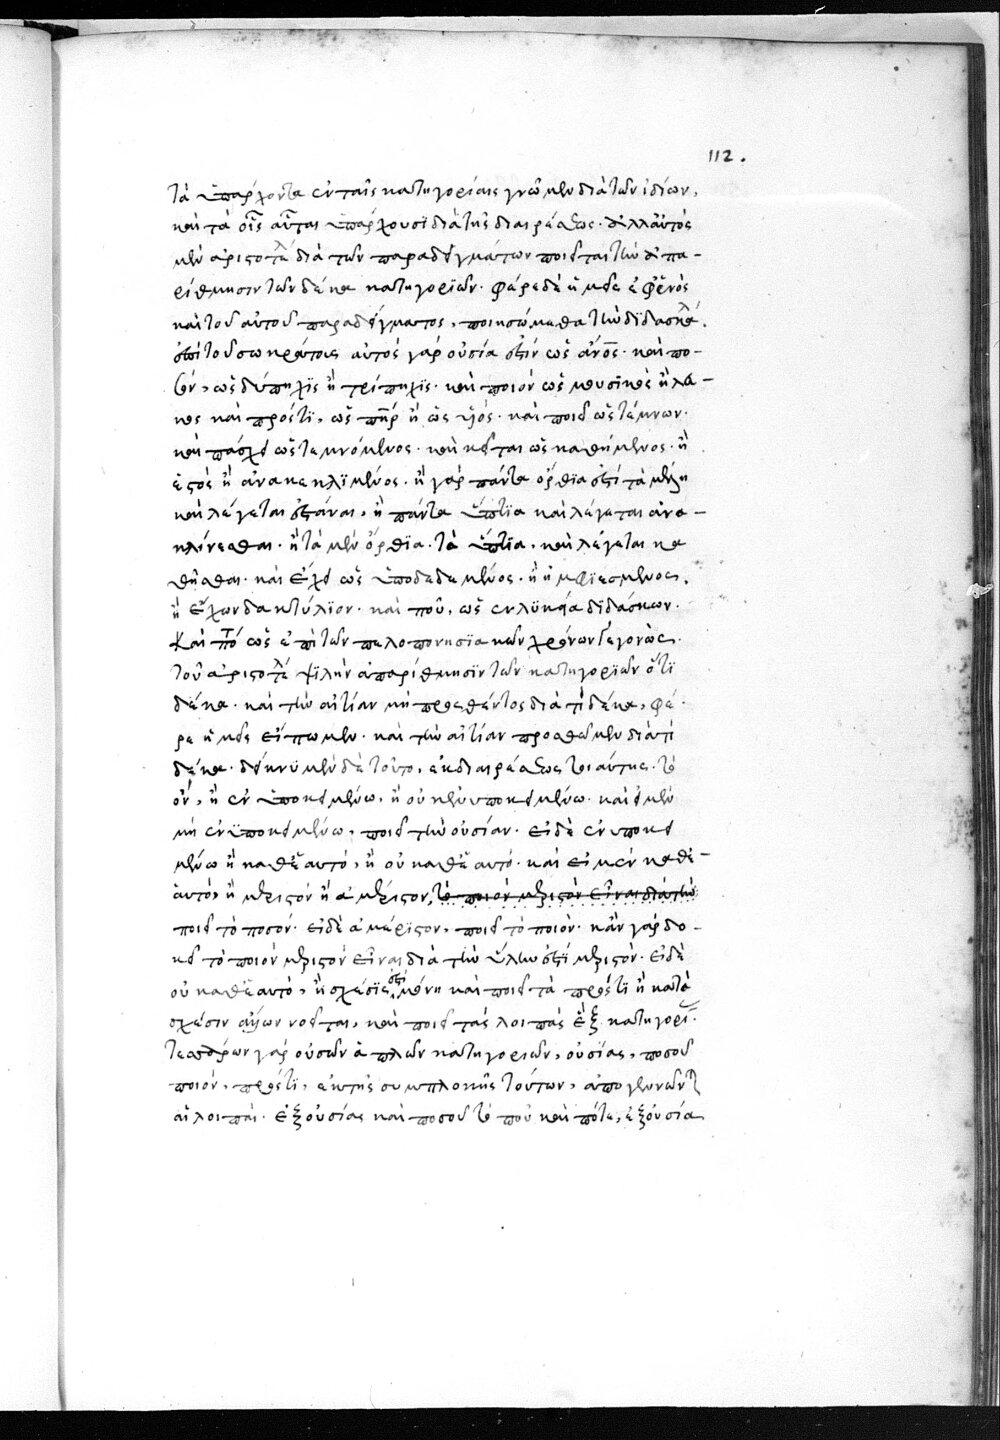 112.
τὰ ὑπάρχοντα ἐν ταῖς κατηγορίαις γνῶμεν διὰ τῶν ἰδίων,
καὶ τὰ οἷς αὗται ὑπάρχουσι διὰ τῆς διαιρέσεως. ἀλλ' αὐτὸς
μὲν ἀριστοτέλ διὰ τῶν παραδειγμάτων ποιεῖται τὴν ἀπα-
ρίθμησιν τῶν δέκα κατηγορϊῶν. φέρε δὲ ἡμεῖς ἐφ' ἑνὸς
καὶ τοῦ αὐτοῦ παραδείγματος, ποιησώμεθα τὴν διδασκαλ.
ἐπὶ τοῦ σωκράτους αὐτὸς γὰρ οὐσία ἐστὶν ὡς ἄνος. καὶ πο-
σόν, ὡς δίπηχϊς ἢ τρίπηχϊς. καὶ ποιόν ὡς μουσϊκὸς ἢ λευ-
κος καὶ πρόστϊ, ὡς πηρ ἢ ὡς υἱός. καὶ ποιεῖ ὡς τέμνων.
καὶ πάσχει ὡς τεμνόμενος. καὶ κεῖται ὡς καθήμενος. ἢ
ἑστὸς ἢ ἀνακεκλϊμένος. ἢ γὰρ πάντα ὄρθϊα ἐστὶ τὰ μέλη
καὶ λέγεται ἑστάναι, ἢ πάντα ὕπτϊα καὶ λέγεται ἀνα-
κλίνεσθαι. ἢ τὰ μὲν ὄρθϊα. τὰ ὕπτϊα. καὶ λέγεται κα
θῆσθαι. καὶ ἔχει ὡς ὑποδεδεμένος. ἢ ἠμφϊεσμένος,
ἢ ἔχων δακτύλϊον. καὶ ποῦ, ὡς ἐν λϋκείῳ διδάσκων.
Καὶ πό ὡς ἐπὶ τῶν πελοπονησϊακῶν χρόνων γεγονώς.
τοῦ ἀριστοτέλ ψϊλὴν ἀπαρίθμησϊν τῶν κατηγορϊῶν ὅτϊ
δέκα. καὶ τὴν αἰτίαν μὴ προσθέντος διὰ τί δέκα, φέ.
ρε ἡμεῖς εἴπωμεν. καὶ τὴν αἰτίαν προσθῶμεν διὰ τί
δέκα. δείκνϋμεν δὲ τοῦτο, ἐκ διαιρέσεως τοιαύτης. τὸ
ὄν, ἢ ἐν ὑποκειμένω, ἢ οὐκ ἐν ὑποκειμένω. καὶ εἰ μὲν
μὴ ἐν ὑποκειμένω, ποιεῖ τὴν οὐσίαν. εἰ δὲ ἐν ὑποκει
μένω ἢ καθ' ἑαυτό, ἢ οὐ καθ' ἑαυτό. καὶ εἰ μὲν καθ' ἑ-
αυτὸ, ἢ μεριστόν ἢ ἀμέριστον, τὸ ποιὸν μεριστὸν εἶναι διὰ τὴν
ποιεῖ τὸ ποσόν. εἰ δὲ ἀμέρϊστον, ποιεῖ τὸ ποιόν. κἂν γὰρ δο-
κεῖ τὸ ποιὸν μεριστὸν εἶναι διὰ τὴν ὕλην ἐστὶ μεριστόν. εἰ δὲ
οὐ καθ' ἑαυτό, ἢ σχέσϊς ἐστι μόνη καὶ ποιεῖ τὰ πρόστϊ ἢ κατὰ
σχέσιν νοεῖται, καὶ ποιεῖ τὰς λοιπὰς ἓξ κατηγορί.
τεσσάρων γὰρ οὐσῶν ἁπλῶν κατηγοριῶν, οὐσίας, ποσοῦ
ποιόν, πρόστϊ, ἐκ τῆς συμπλοκῆς τούτων, ἀπογεννῶνται
αἱ λοιπαί. ἐξ οὐσίας καὶ ποσοῦ τὸ ποῦ καὶ πότε, ἐξ οὐσία